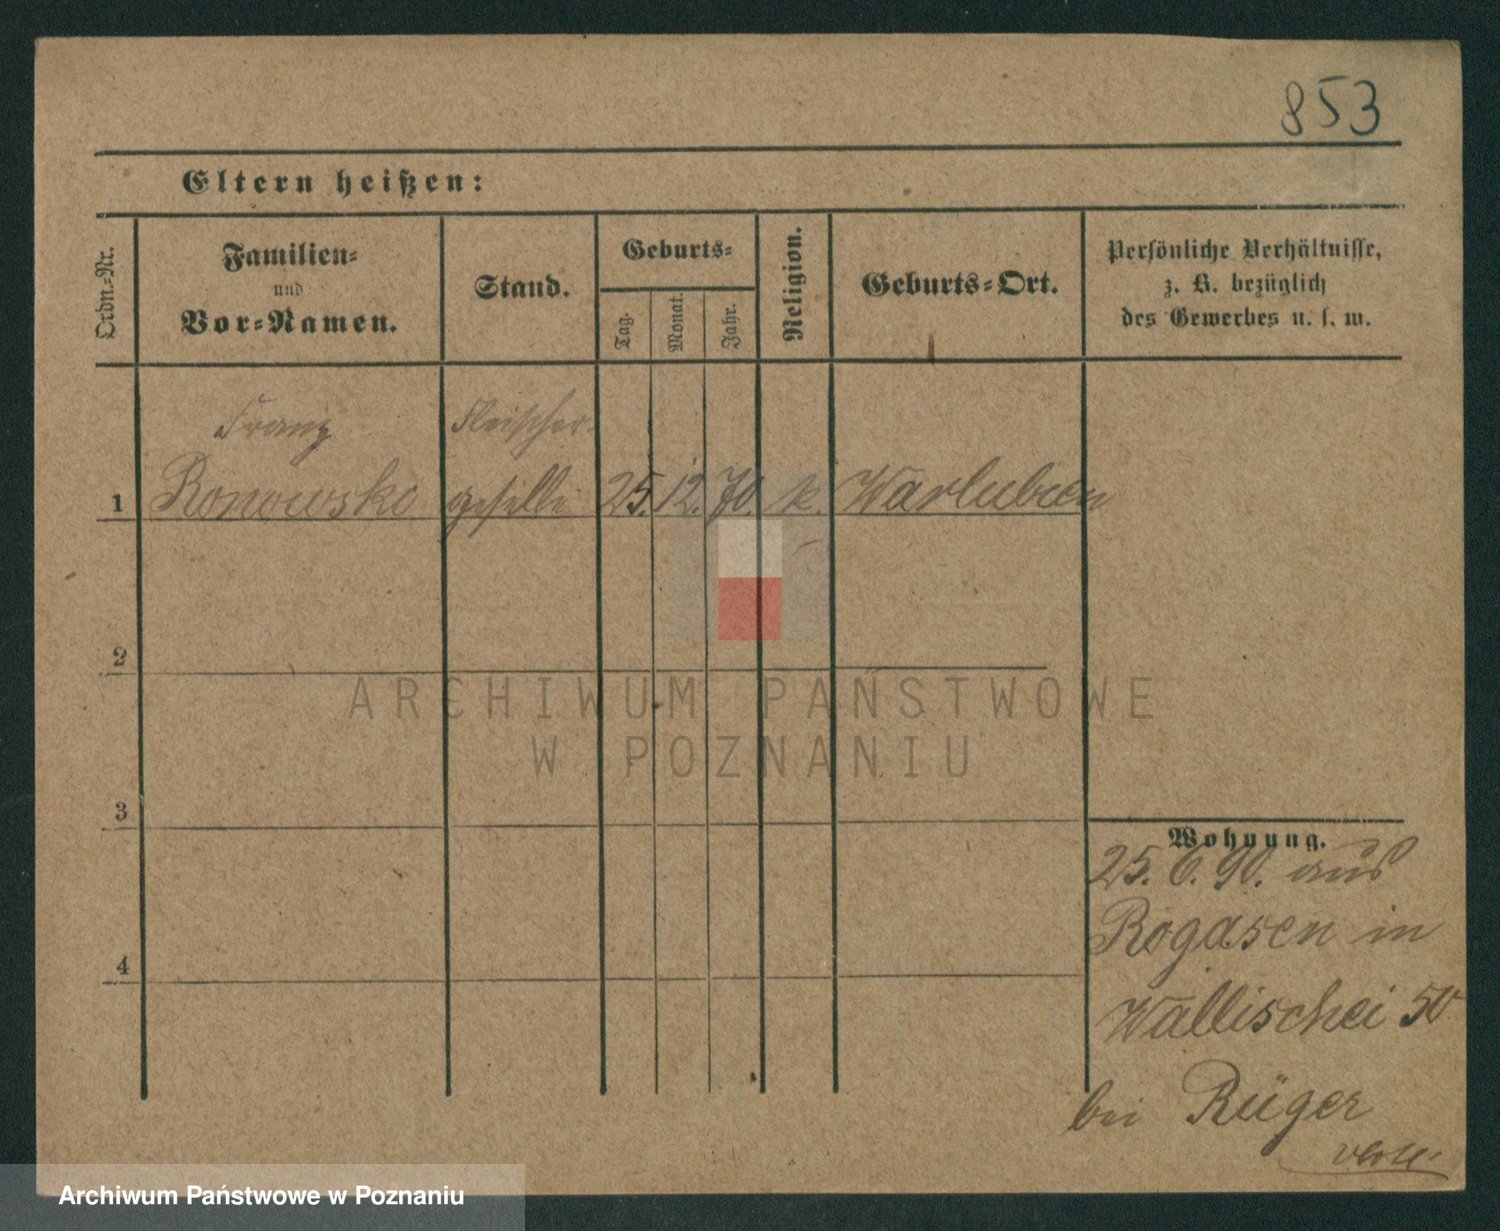 853
Eltern heißen:
Ordn.-Nr.
Familien-
und
Vor-Namen.
Stand.
Geburts-
Tag.
Monat.
Jahr.
Religion.
Geburts-Ort.
Persönliche Verhältnisse,
z. B. bezüglich
des Gewerbes u. s. w.
Franz Fleischer-
1 Ronowski geselle 25. 12. 70. k. Warlubien
2
3
4
Wohnung.
25. 6. 90. aus
Rogasen in
Wallischei 50
bei Rüger
ARCHIWUM PAŃSTWOWE
W POZNANIU
Archiwum Państwowe w Poznaniu